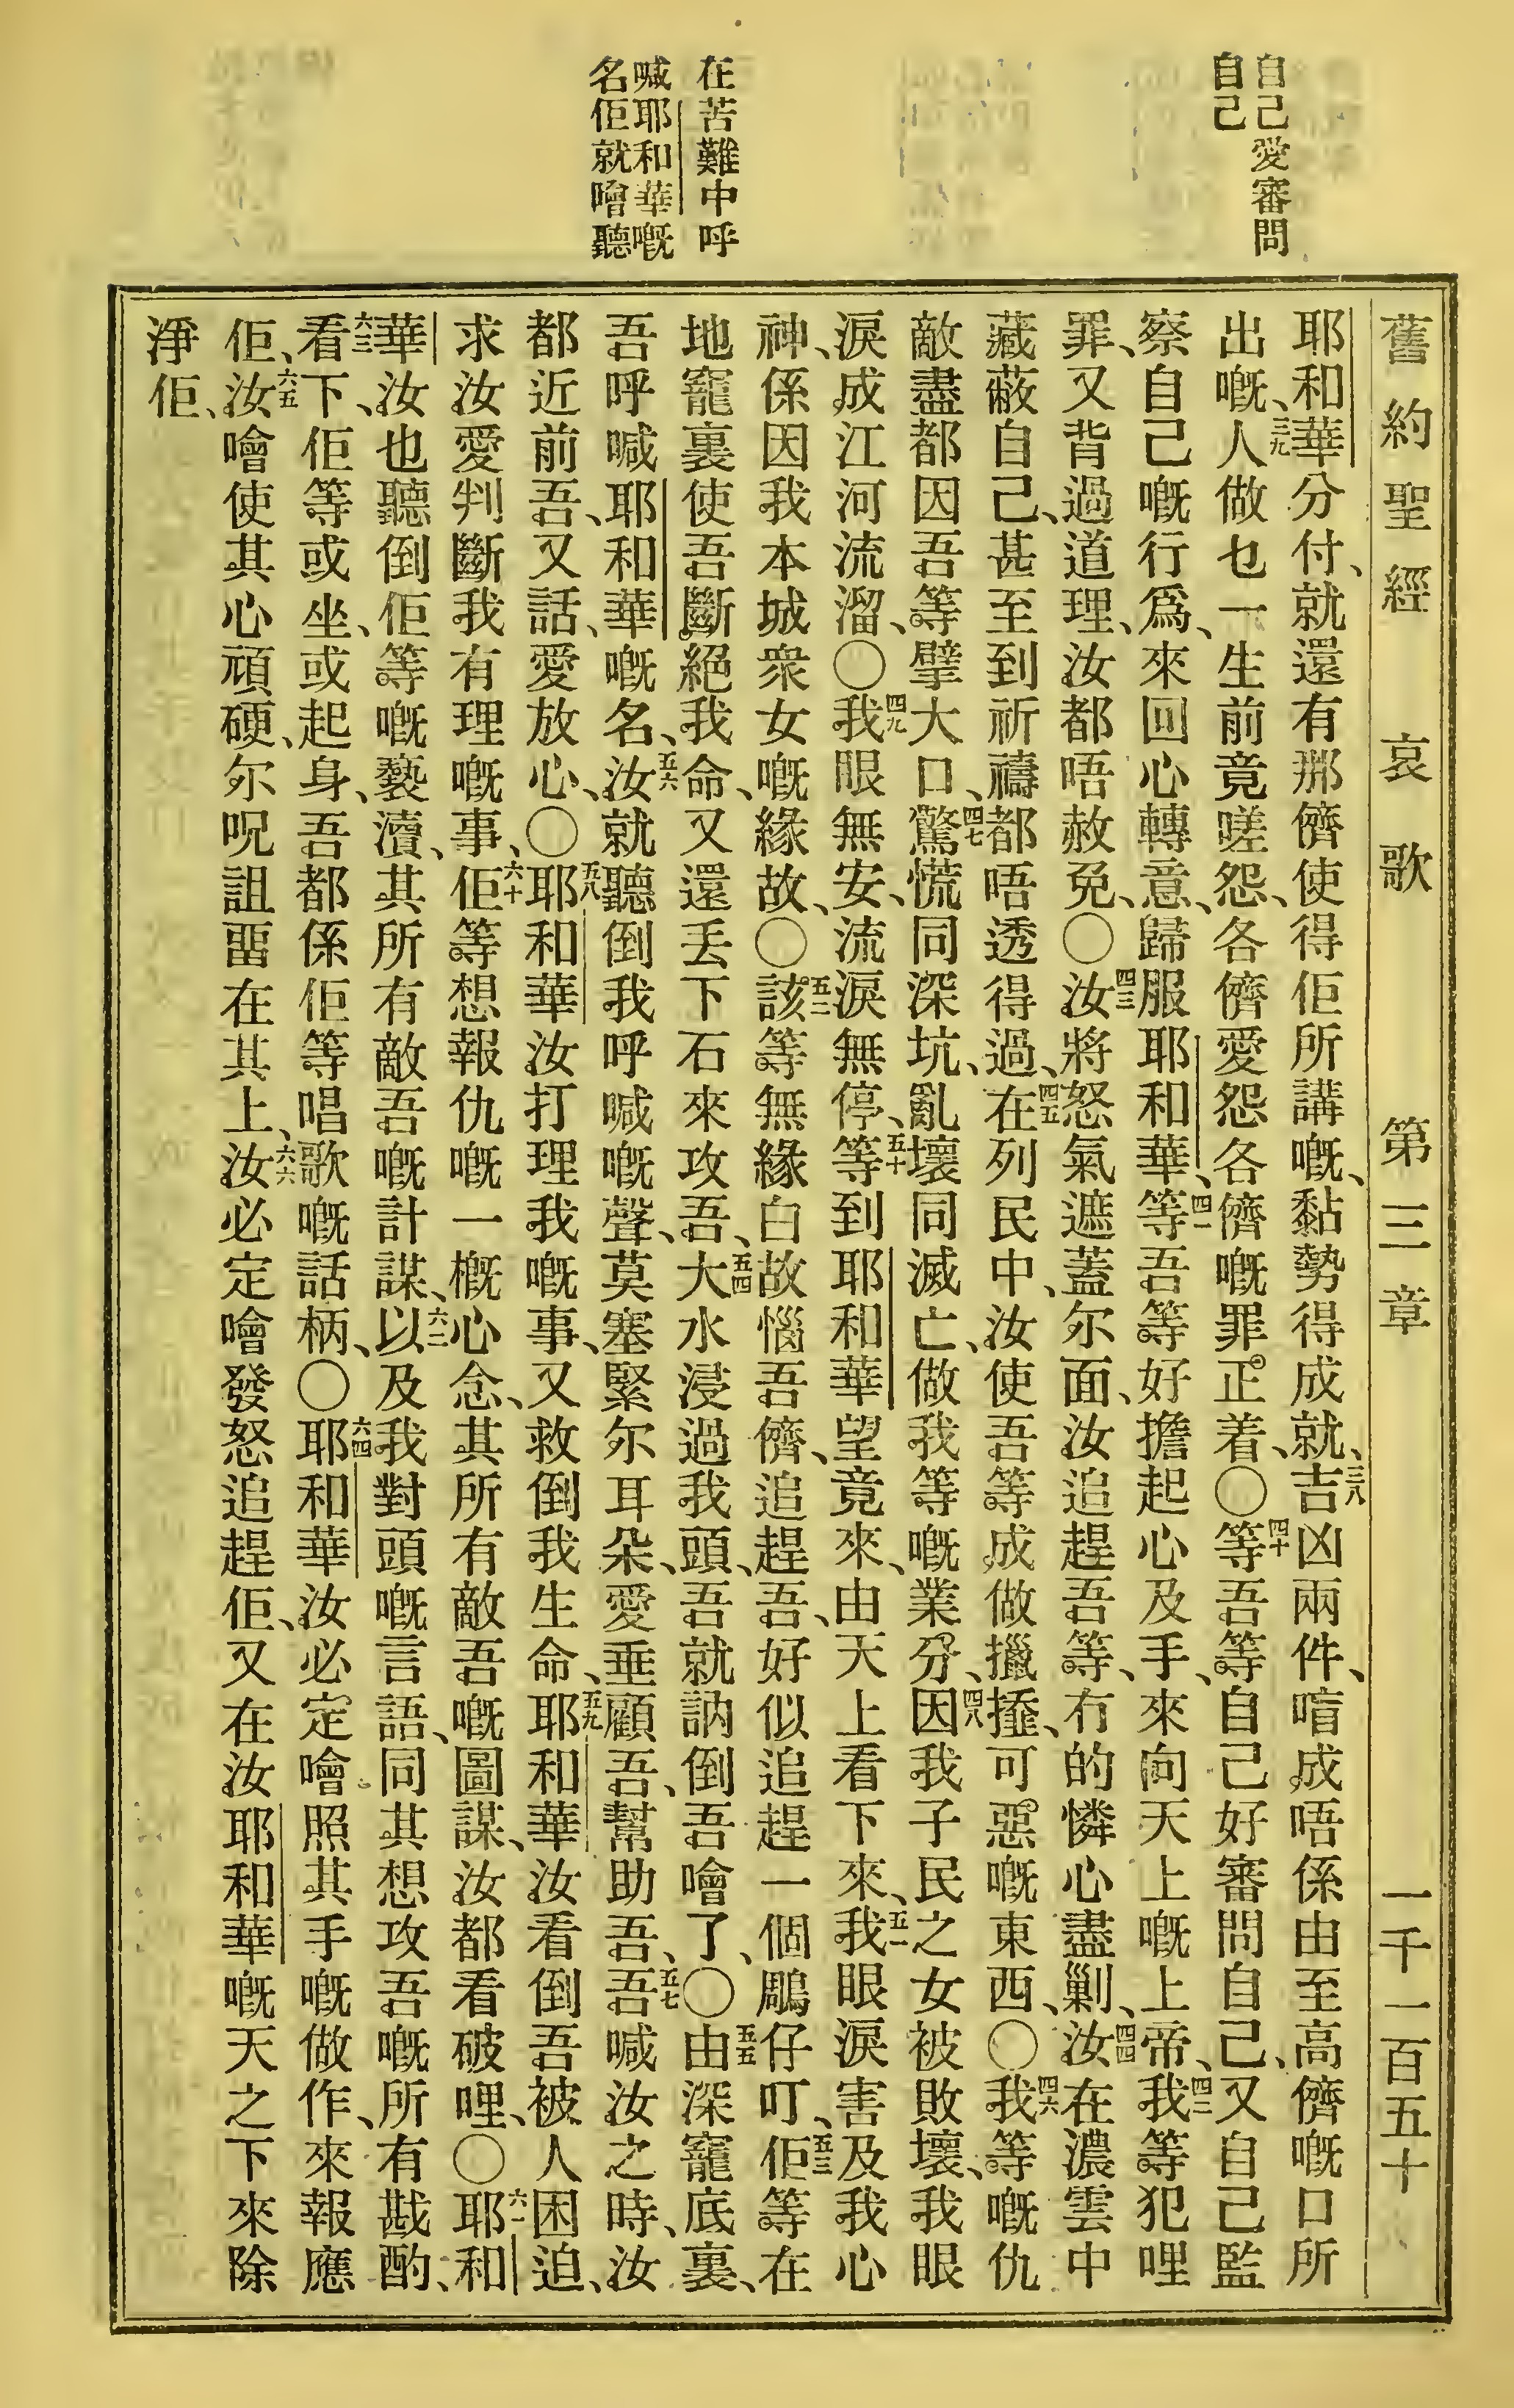 舊約聖經　哀歌　第三章　一千一百五十
自己愛審問
自己
在苦難中呼
喊耶和華嘅
名佢就噲聽
耶和華分付、就還有那儕使得佢所講嘅、黏勢得成就、三八吉凶兩件、唷成唔係由至高儕嘅口所
出嘅、三九人做乜一生前竟嗟怨、各儕愛怨各儕嘅罪正着、〇四十等吾等自己好審問自己、又自己監
察自己嘅行爲、來回心轉意、歸服耶和華、四一等吾等好擔起心及手、來向天上嘅上帝、四二我等犯哩
罪、又背過道理、汝都唔赦免、〇四三汝將怒氣遮蓋尔面、汝追趕吾等、冇的憐心盡剿、四四汝在濃雲中
藏蔽自己、甚至到祈禱都唔透得過、四五在列民中、汝使吾等成做擸𢶍、可惡嘅東西、〇四六我等嘅仇
敵盡都因吾等擘大口、四七驚慌同深坑、亂壞同滅亡、做我等嘅業分、四八因我子民之女被敗壞、我眼
淚成江河流溜、〇四九我眼無安、流淚無停、五十等到耶和華望竟來、由天上看下來、五一我眼淚害及我心
神、係因我本城衆女嘅緣故、〇五二該等無緣白故惱吾儕、追趕吾、好似追趕一個鵰仔叮、五三佢等在
地窿裏使吾斷絕我命、又還丢下石來攻吾、五四大水浸過我頭、吾就訥倒吾噲了、〇五五由深窿底裏、
吾呼喊耶和華嘅名、五六汝就聽倒我呼喊嘅聲、莫塞緊尔耳朵、愛垂顧吾、幫助吾、五七吾喊汝之時、汝
都近前吾、又話、愛放心、〇五八耶和華汝打理我嘅事、又救倒我生命、五九耶和華汝看倒吾被人困迫、
求汝愛判斷我有理嘅事、六十佢等想報仇嘅一概心念、其所有敵吾嘅圖謀、汝都看破哩、〇六一耶和
華汝也聽倒佢等嘅褻瀆、其所有敵吾嘅計謀、六二以及我對頭嘅言語、同其想攻吾嘅所有戡酌、
六三看下、佢等或坐、或起身、吾都係佢等唱歌嘅話柄、〇六四耶和華汝必定噲照其手嘅做作、來報應
佢、六五汝噲使其心頑硬、尔呪詛畱在其上、六六汝必定噲發怒追趕佢、又在汝耶和華嘅天之下來除
淨佢、